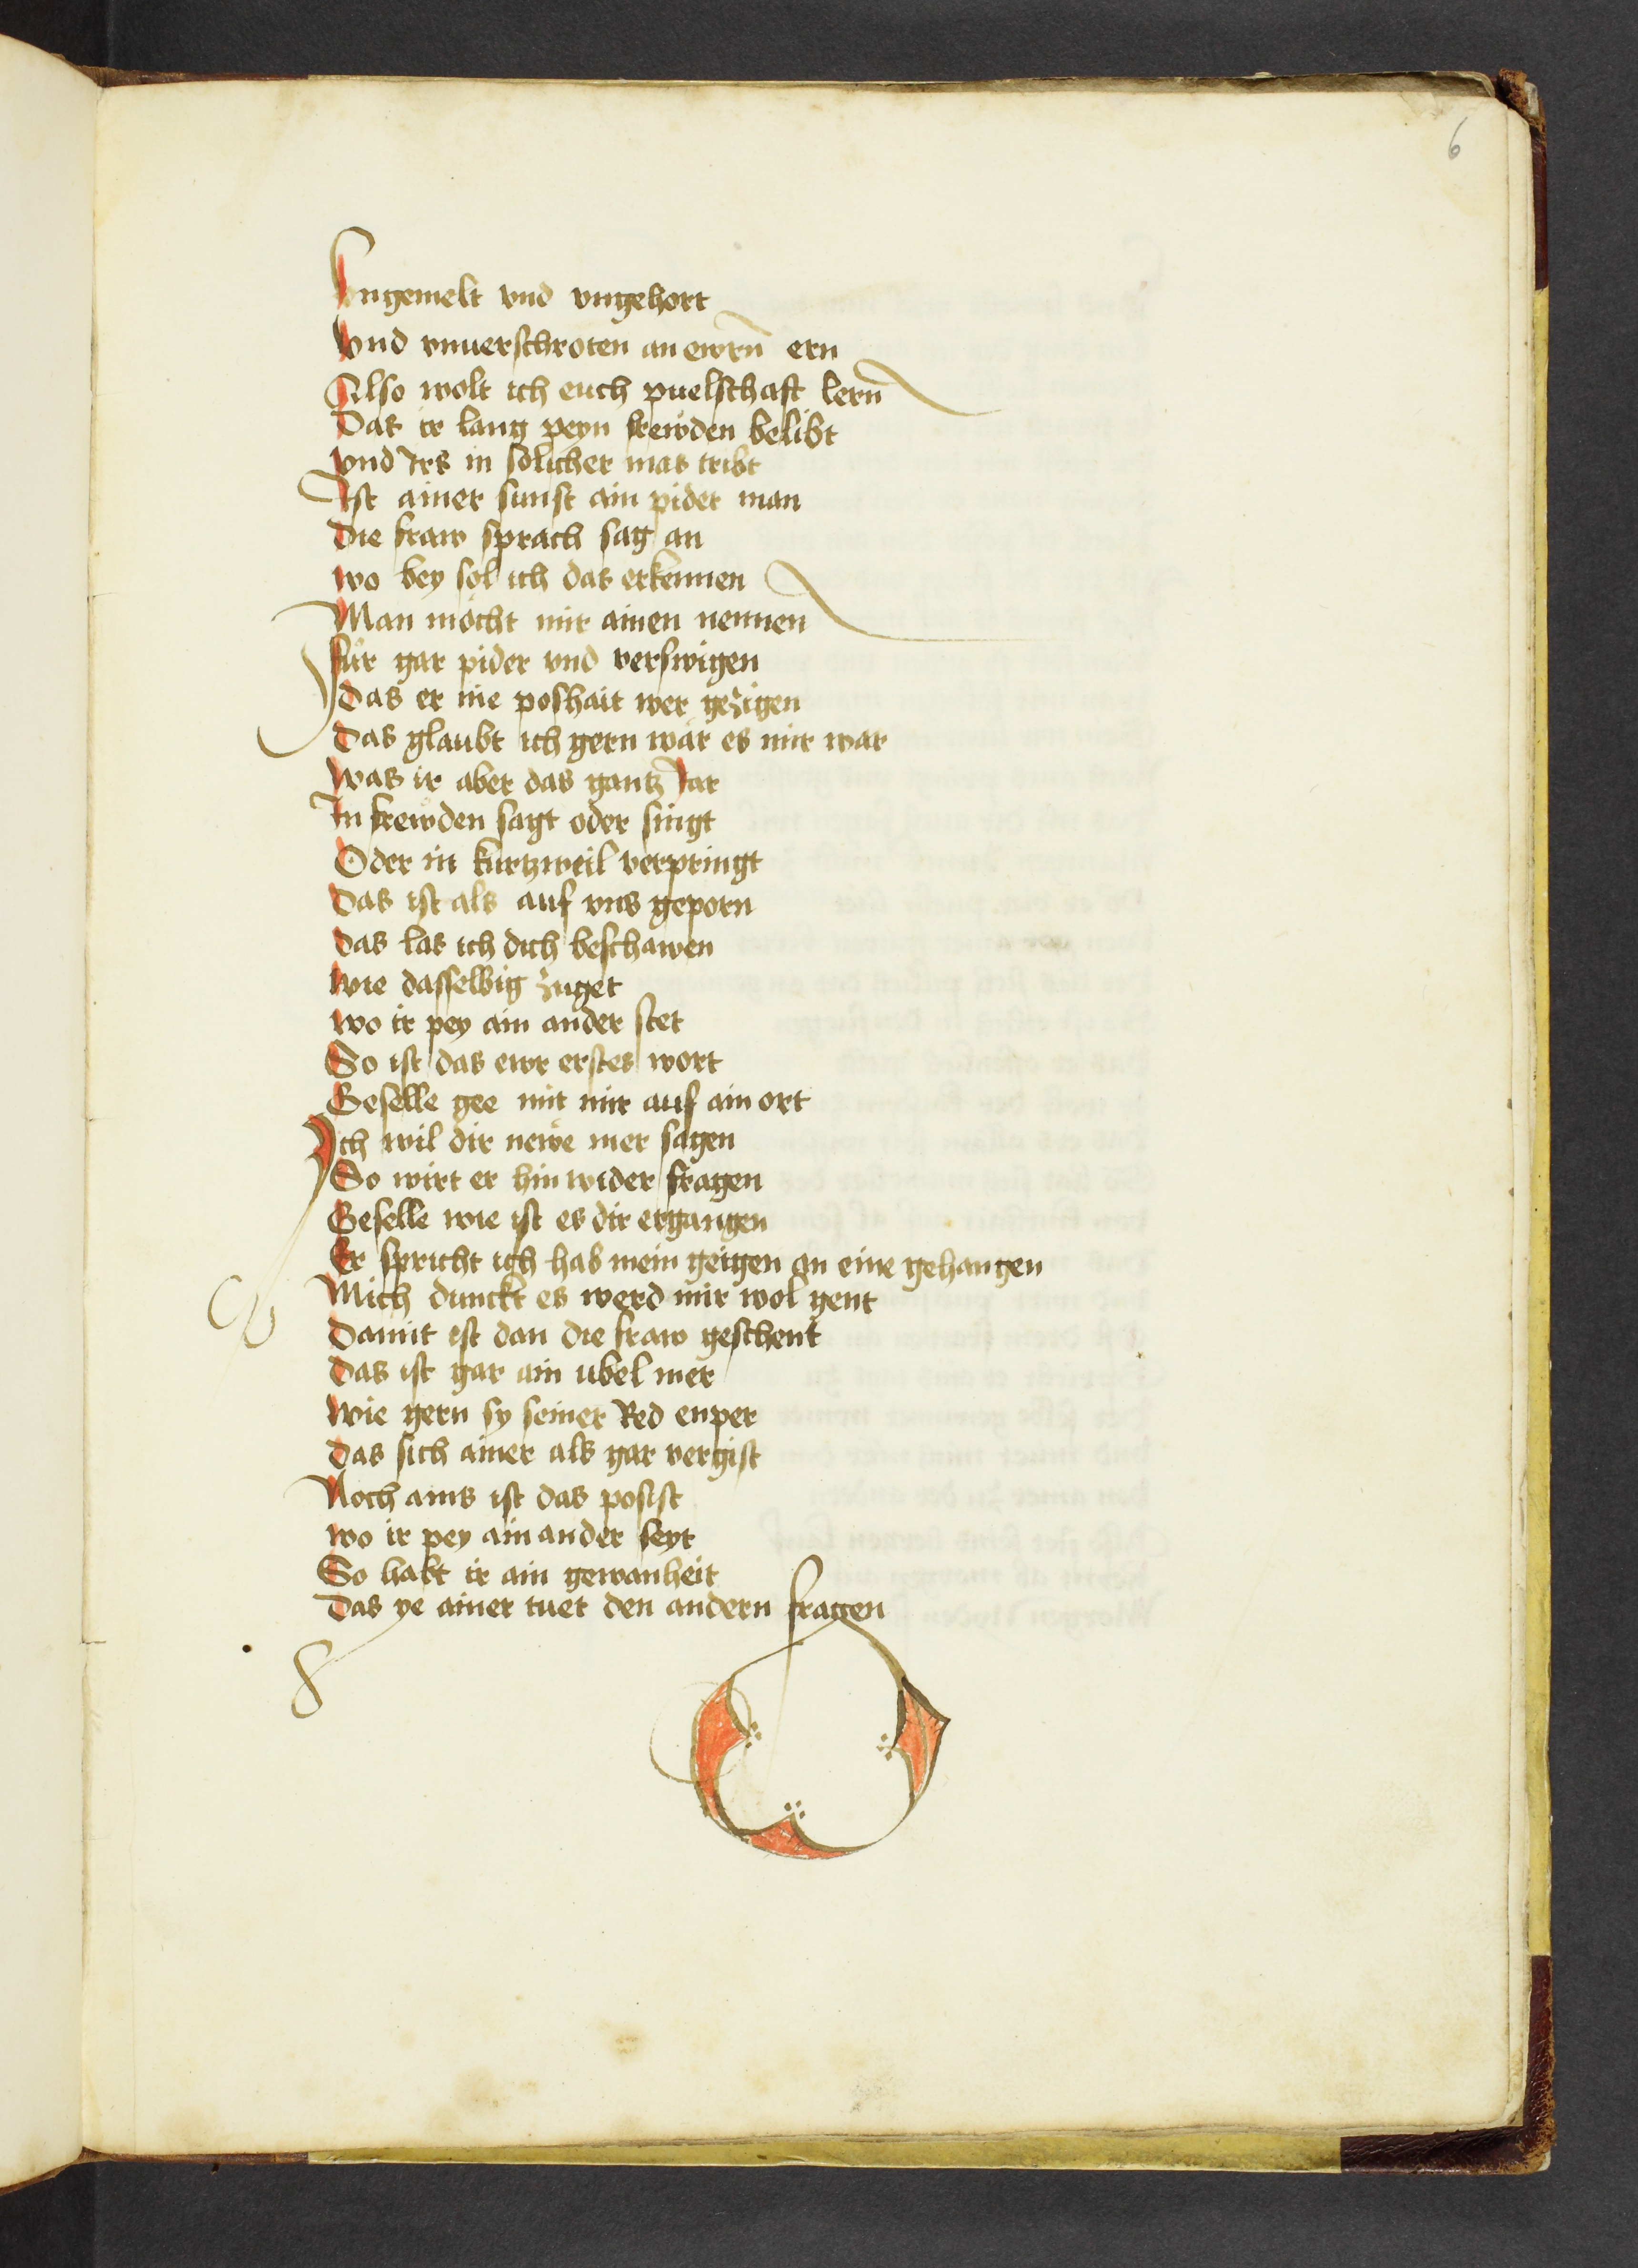 6
Vngemelt vnd vngehort
Vnd vnuerschroten an ewrn̄ ern
Also wolt ich euch puelschaft lern̄
Das ir lang peyn frewden belibt
vnd Irs in solicher mas tribt
Ist ainer sunst ain pider man
Die fraw sprach sag an
wo bey sol ich das erkennen
Man möcht mir ainen nennen
für gar pider vnd verswigen
das er nie poshait wer gezigen
Das glaubt ich gern wär es mir war
Was ir aber das gantz Iar
In frewden sagt oder singt
Oder in kurtzweil verpringt
das ist als auf vns geporn
das las ich dich beschawen
wie dasselbig zuget
wo ir pey ain ander stet
So ist das ewr erstes wort
Geselle gee mit mir auf ain ort
Ich wil dir newe mer sagen
So wirt er hin wider fragen
Geselle wie ist es dir ergangen
Er spricht ich hab mein geigen an eine gehangen
Mich dunckt es werd mir wol gent
Damit ist dan die fraw geschent
das ist gar ain ubel mer
Wie gern sy seiner Red enper
das sich ainer als gar vergist
Noch ains ist das posist
wo ir pey ain ander seyt
So habt ir ain gewanheit
Das ye ainer tuet den andern fragen